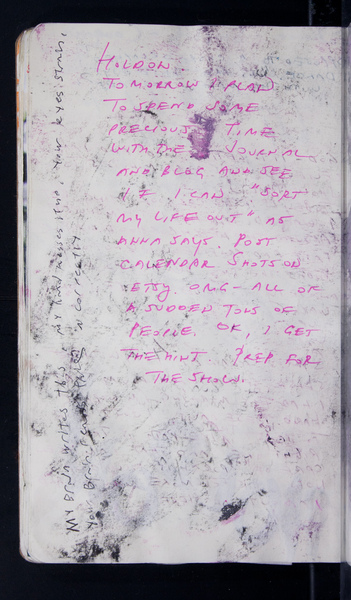 HOLDON.
TOMORROW I PLAN
TO SPEND SOME
PRECIOUS TIME
WITH THE JOURNAL
AND BLOG AND SEE
IF I CAN "SORT
MY LIFE OUT" AS
ANNA SAYS. POST
CALENDAR SHOTS ON
ETSY OMG - ALL OF
A SUDDEN TONS OF
PEOPLE. OK, I GET
THE HINT. PREP FOR
THE SHOW.
My Brain writes this. My hand messes it up. Your eyes
Your Brain Reads it correctly